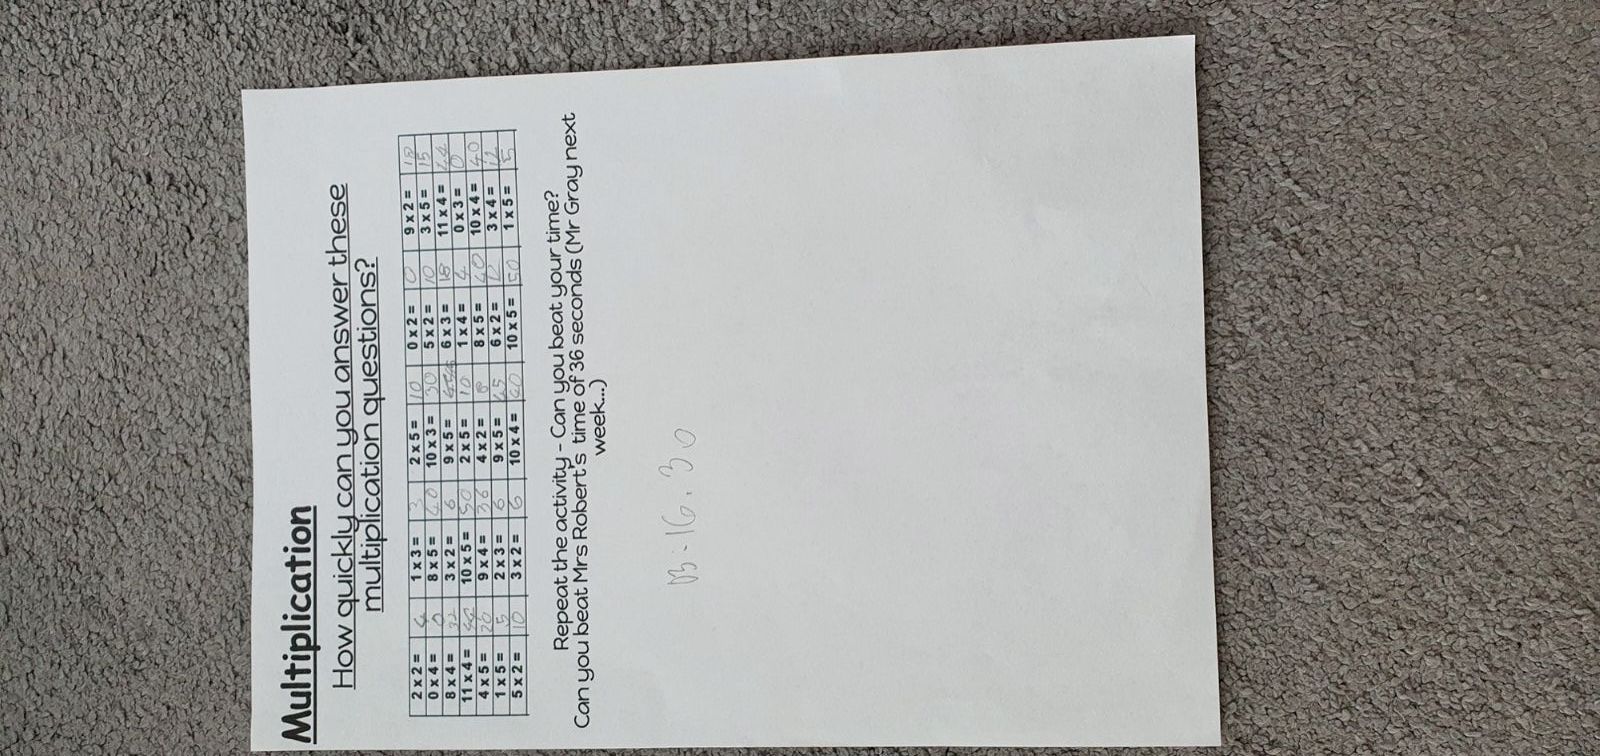 Multiplication
How quickly can you answer these
multiplication questions?
2 x 2 = 4 1 x 3 = 3 2 x 5 = 10 0 x 2 = 0 9 x 2 = 18
0 x 4 = 0 8 x 5 = 40 10 x 3 = 30 5 x 2 = 10 3 x 5 = 15
8 x 4 = 32 3 x 2 = 6 9 x 5 = 6 x 3 = 18 11 x 4 = 44
11 x 4 = 10 x 5 = 50 2 x 5 = 10 1 x 4 = 4 0 x 3 = 0
4 x 5 = 20 9 x 4 = 36 4 x 2 = 8 8 x 5 = 40 10 x 4 = 40
1 x 5 = 5 2 x 3 = 6 9 x 5 = 45 6 x 2 = 12 3 x 4 = 12
5 x 2 = 10 3 x 2 = 6 10 x 4 = 40 10 x 5 = 50 1 x 5 = 5
Repeat the activity - Can you beat your time?
Can you beat Mrs Robert's time of 36 seconds (Mr Gray next
week...)
16.30